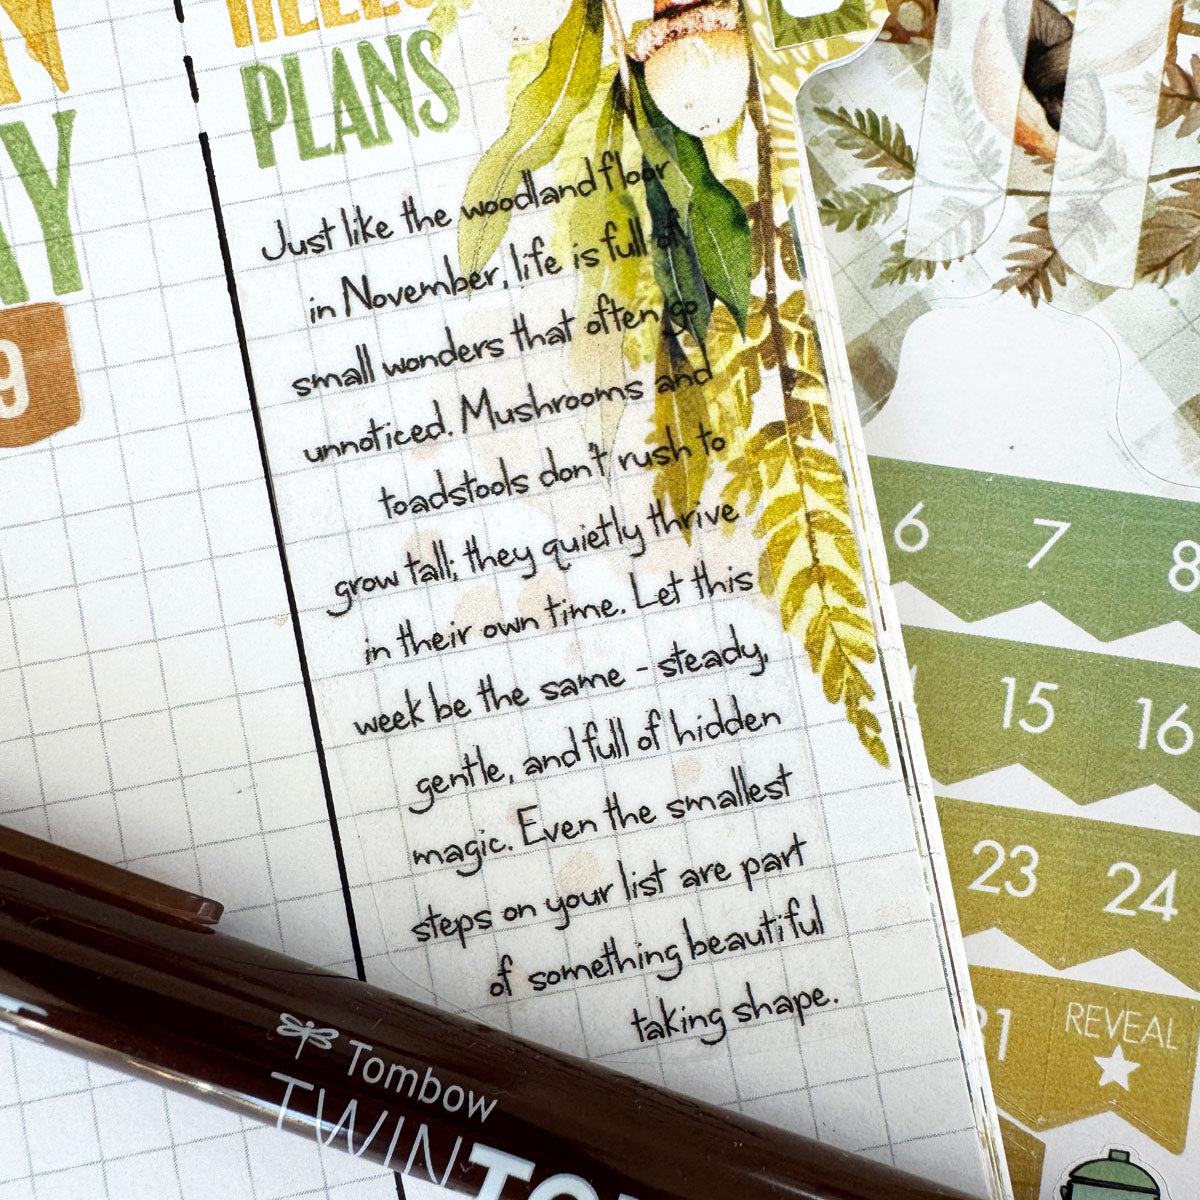 HELLO
PLANS
9
Just like the woodland floor
in November, life is full of
small wonders that often go
unnoticed. Mushrooms and
toadstools don't rush to
grow tall; they quietly thrive
in their own time. Let this
week be the same - steady,
gentle, and full of hidden
magic. Even the smallest
steps on your list are part
of something beautiful
taking shape.
6 7 8
15 16
23 24
REVEAL
Tombow
TWIN